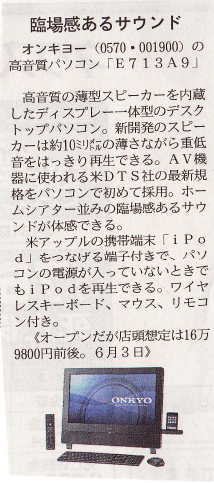 臨場感あるサウンド
オンキヨー（0570・001900）の
高音質パソコン「E713A9」
高音質の薄型スピーカーを内蔵
したディスプレー一体型のデスク
トップパソコン。新開発のスピー
カーは約10㍉㍍の薄さながら重低
音をはっきり再生できる。AV機
器に使われる米DTS社の最新規
格をパソコンで初めて採用。ホー
ムシアター並みの臨場感あるサウ
ンドが体感できる。
米アップルの携帯端末「iPo
d」をつなげる端子付きで、パソ
コンの電源が入っていないときで
もiPodを再生できる。ワイヤ
レスキーボード、マウス、リモコ
ン付き。
《オープンだが店頭想定は16万
9800円前後。6月3日》
ONKYO